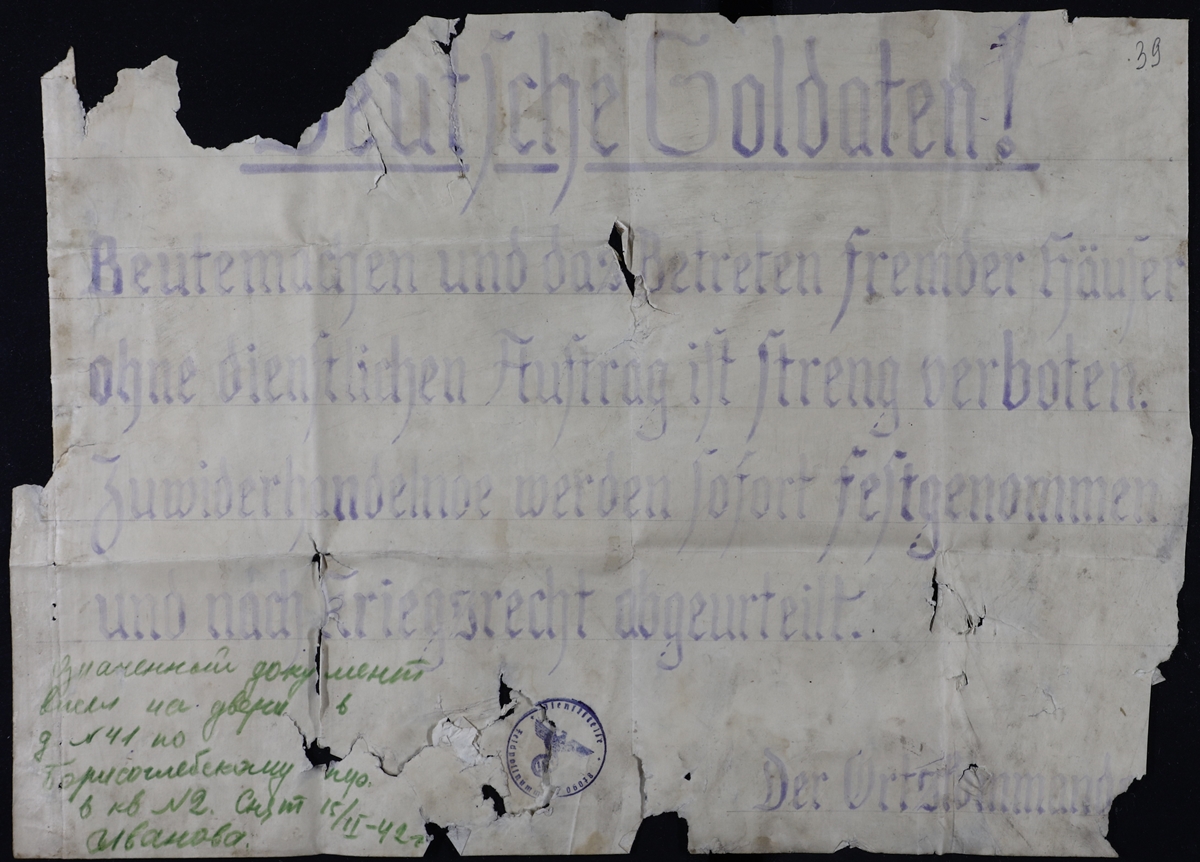 39
Deutsche Soldaten!
Beutemachen und das Betreten fremder Häuser
ohne dienstlichen Auftrag ist streng verboten.
Zuwiderhandelnde werden sofort festgenommen
und nach Kriegsrecht abgeurteilt.
Der Ortskommand
Означенный документ
висел на двери в
д. №41 по
Борисоглебскому пер.
в кв №2. Снят 15/II-42г
Иванова.
Dienststelle